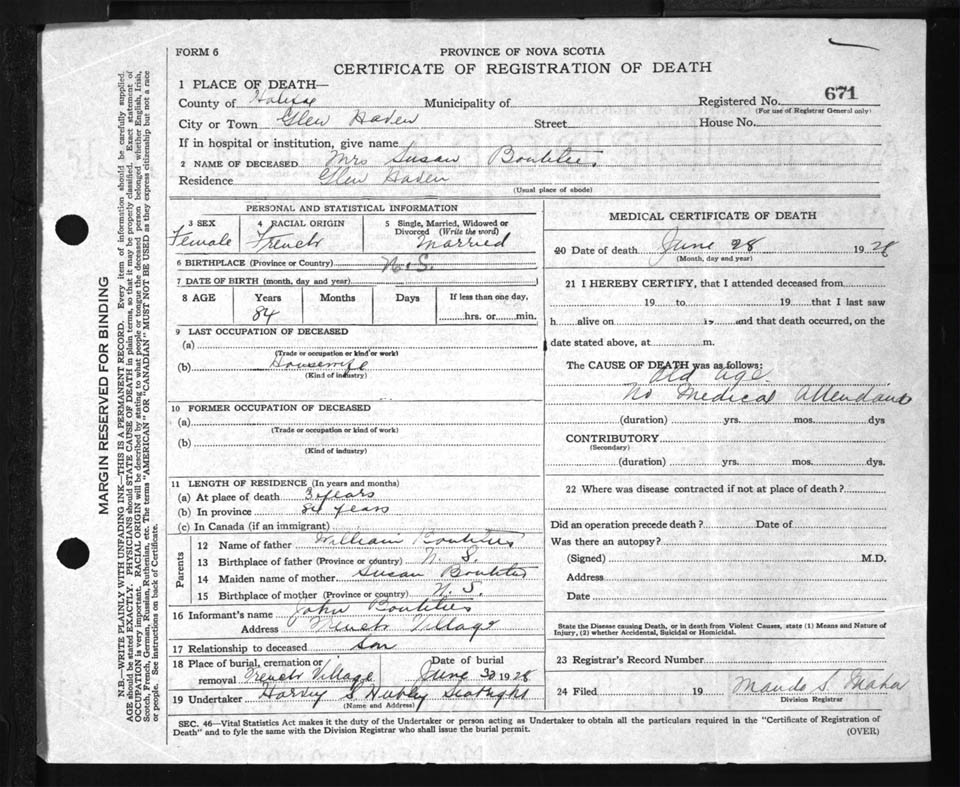 FORM 6
PROVINCE OF NOVA SCOTIA
CERTIFICATE OF REGISTRATION OF DEATH
1 PLACE OF DEATH—
County of Halifax Municipality of Registered No. 671
(For use of Registrar General only)
City or Town Glen Haven Street House No.
If in hospital or institution, give name
2 NAME OF DECEASED Mrs Susan Boutilier
Residence Glen Haven
(Usual place of abode)
PERSONAL AND STATISTICAL INFORMATION
3 SEX Female
4 RACIAL ORIGIN French
5 Single, Married, Widowed or Divorced (Write the word) Married
6 BIRTHPLACE (Province or Country) N.S.
7 DATE OF BIRTH (month, day and year)
8 AGE Years Months Days If less than one day,
84 hrs. or min.
9 LAST OCCUPATION OF DECEASED
(a)
(Trade or occupation or kind or work)
(b) Housewife
(Kind of industry)
10 FORMER OCCUPATION OF DECEASED
(a)
(Trade or occupation or kind of work)
(b)
(Kind of industry)
11 LENGTH OF RESIDENCE (In years and months)
(a) At place of death 3 years
(b) In province 84 years
(c) In Canada (if an immigrant)
Parents
12 Name of father William Boutilier
13 Birthplace of father (Province or country) N.S.
14 Maiden name of mother Susan Boutilier
15 Birthplace of mother (Province or country) N.S.
16 Informant's name John Boutilier
Address French Village
17 Relationship to deceased son
18 Place of burial, cremation or removal French Village
Date of burial June 30 1928
19 Undertaker Harvey S Hubley
(Name and Address)
MEDICAL CERTIFICATE OF DEATH
20 Date of death June 28 1928
(Month, day and year)
21 I HEREBY CERTIFY, that I attended deceased from
19 to 19 that I last saw
h alive on 19 and that death occurred, on the
date stated above, at m.
The CAUSE OF DEATH was as follows:
Old age
No Medical Attendance
(duration) yrs. mos. dys
CONTRIBUTORY
(Secondary)
(duration) yrs. mos. dys.
22 Where was disease contracted if not at place of death?
Did an operation precede death? Date of
Was there an autopsy?
(Signed) M.D.
Address
Date
State the Disease causing Death, or in death from Violent Causes, state (1) Means and Nature of
Injury, (2) whether Accidental, Suicidal or Homicidal.
23 Registrar's Record Number
24 Filed 19 Maude S.
Division Registrar
SEC. 46—Vital Statistics Act makes it the duty of the Undertaker or person acting as Undertaker to obtain all the particulars required in the "Certificate of Registration of
Death" and to fyle the same with the Division Registrar who shall issue the burial permit.
(OVER)
MARGIN RESERVED FOR BINDING
N.B.—WRITE PLAINLY WITH UNFADING INK—THIS IS A PERMANENT RECORD. Every item of information should be carefully supplied.
AGE should be stated EXACTLY. PHYSICIANS should STATE CAUSE OF DEATH in plain terms, so that it may be properly classified. Exact statement of
OCCUPATION is very important. RACIAL ORIGIN will be described by stating to what people or tongue the deceased person belonged whether English, Irish,
Scotch, French, German, Russian, Ruthenian, etc. The terms "AMERICAN" OR "CANADIAN" MUST NOT BE USED as they express citizenship but not a race
or people. See instructions on back of Certificate.